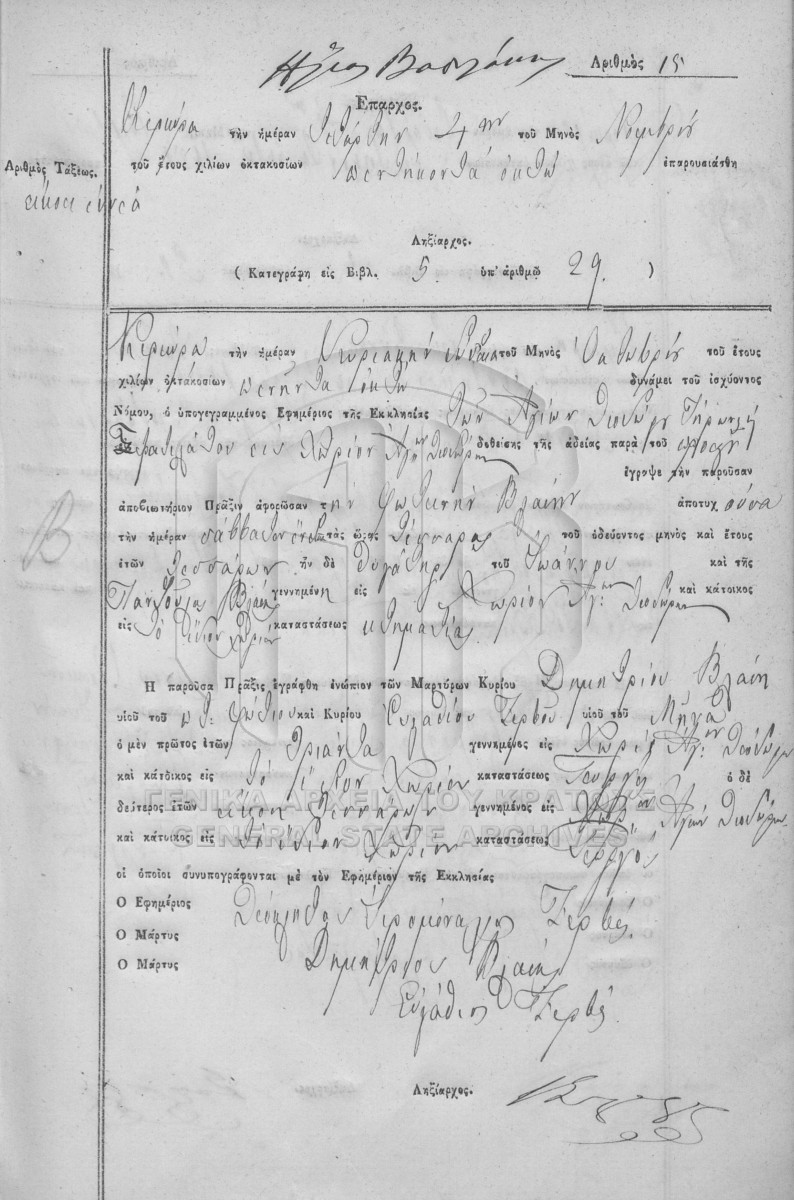 Αριθμὸς 15
Έπαρχος.
Κέρκυρα τὴν ἡμέραν τετάρτην 4ην τοῦ Μηνὸς Νοεμβρίου
Αριθμὸς Τάξεως. τοῦ ἔτους χιλίων ὀκτακοσίων πεντήκοντα ὀκτὼ ἐπαρουσιάσθη
εἴκοσι εννέα
Ληξίαρχος.
( Κατεγράφη εἰς Βιβλ. 5 ὑπ' ἀριθμῷ 29. )
Κέρκυρα τὴν ἡμέραν Κυριακὴν τοῦ Μηνὸς Οκτωβρίου τοῦ ἔτους
χιλίων ὀκτακοσίων πενῆντα ὀκτὼ δυνάμει τοῦ ἰσχύοντος
Νόμου, ὁ ὑπογεγραμμένος Ἐφημέριος τῆς Ἐκκλησίας τῶν Ἁγίων Θεοδώρων
εἰς Χωρίον Αγ: Θεοδώρων δοθείσης τῆς ἀδείας παρὰ τοῦ
ἔγραψε τὴν παροῦσαν
ἀποβιωτήριον Πρᾶξιν ἀφορῶσαν τὴν Φωτεινὴν Βλάχην ἀποτυχ οῦσα
τὴν ἡμέραν σάββατον τὰς ὥρας τέσσαρας τοῦ ὁδεύοντος μηνὸς καὶ ἔτους
ἐτῶν τεσσάρων ἦν δὲ θυγάτηρ τοῦ Ἰωάννου καὶ τῆς
γεννημένη εἰς Χωρίον Αγ: Θεοδώρων καὶ κάτοικος
εἰς τὸ ἴδιον χωρίον καταστάσεως κτηματία
Β
Ἡ παροῦσα Πρᾶξις ἐγράφθη ἐνώπιον τῶν Μαρτύρων Κυρίου Δημητρίου Βλάχη
υἱοῦ τοῦ π: Φωτίου καὶ Κυρίου Ευσταθίου Ζερβοῦ υἱοῦ τοῦ
ὁ μὲν πρῶτος ἐτῶν τριάντα γεννημένος εἰς Χωρίον Αγ: Θεοδώρων
καὶ κάτοικος εἰς τὸ ἴδιον Χωρίον καταστάσεως Γεωργὸς ὁ δὲ
δεύτερος ἐτῶν εἴκοσι τεσσάρων γεννημένος εἰς Χωρίον Αγίων Θεοδώρων
καὶ κάτοικος εἰς τὸ ἴδιον Χωρίον καταστάσεως Γεργὸς
οἱ ὁποῖοι συνυπογράφονται μὲ τὸν Ἐφημέριον τῆς Ἐκκλησίας
Ὁ Ἐφημέριος Θεόκλητος Ιερομόναχος Ζερβός
Ὁ Μάρτυς Δημήτριος Βλάχης
Ὁ Μάρτυς Ευστάθιος Ζερβός
Ληξίαρχος.
ΓΕΝΙΚΑ ΑΡΧΕΙΑ ΤΟΥ ΚΡΑΤΟΥΣ
GENERAL STATE ARCHIVES